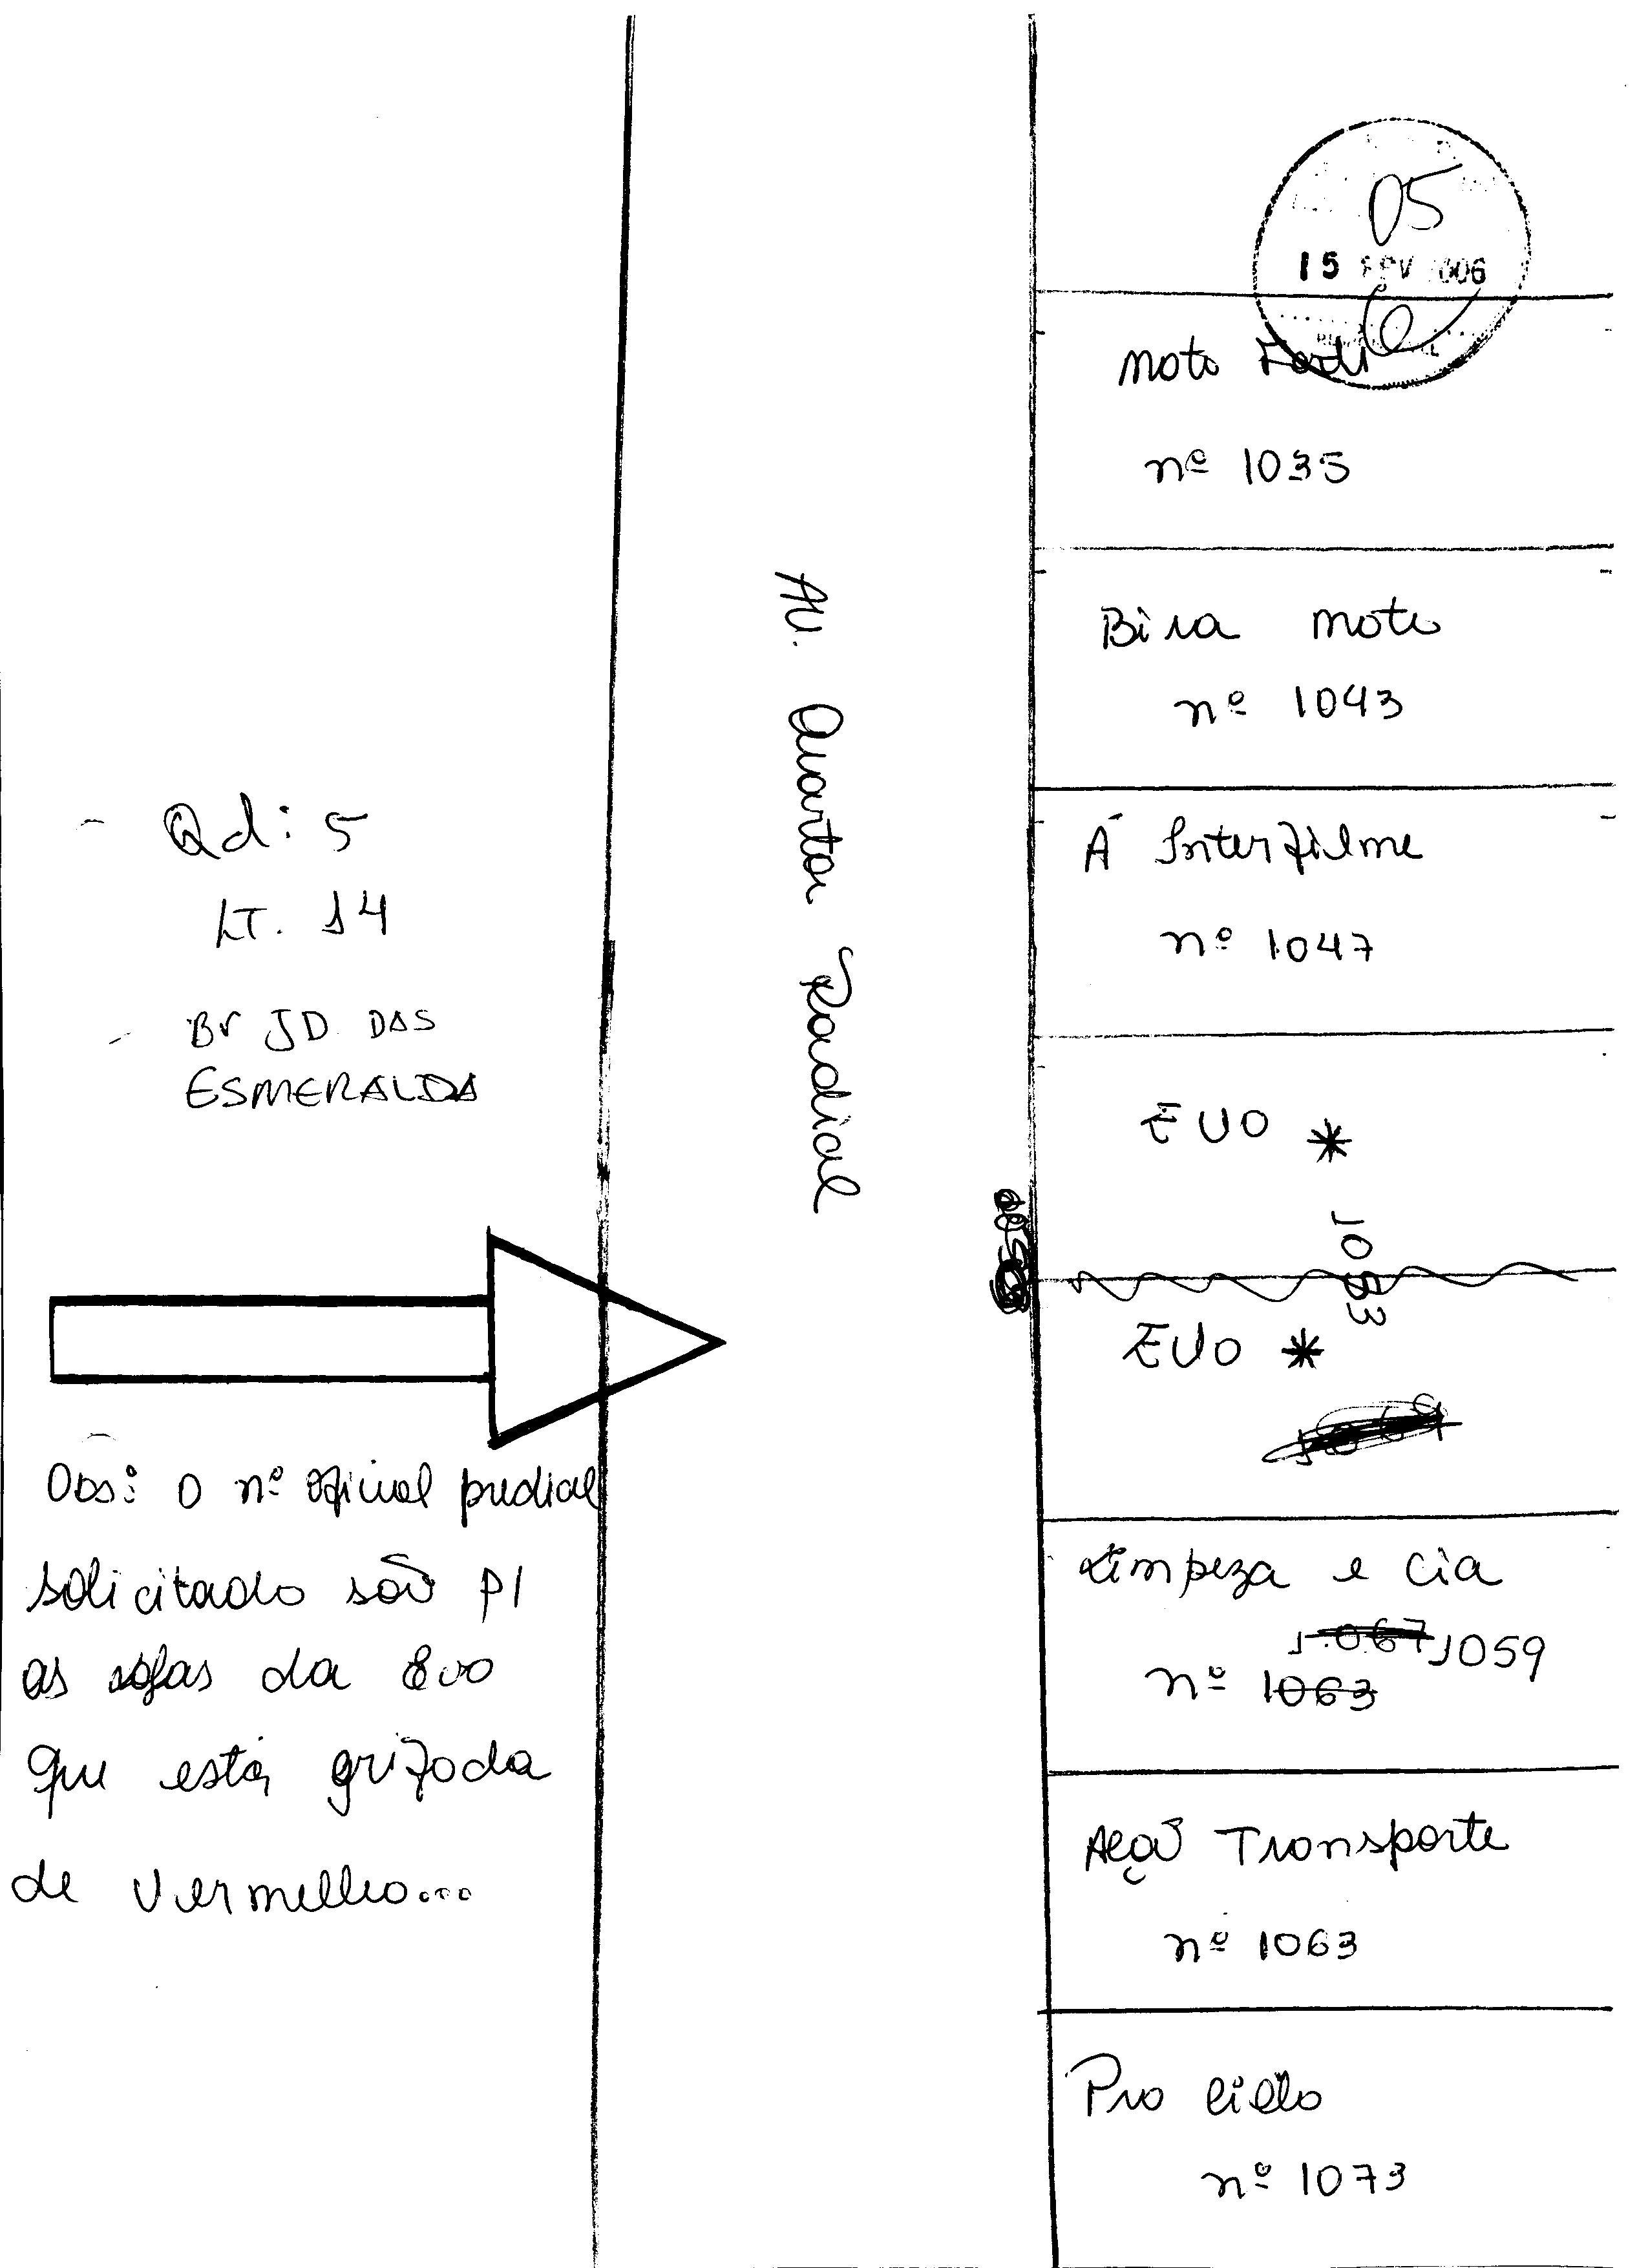 05
15 FEV 006
Moto
nº 1035
Bira moto
nº 1043
A Interfilme
nº 1047
EVO *
1053
EVO *
Limpeza e Cia
1.067 1059
nº 1063
Ação Transporte
nº 1063
Pro Ciclo
nº 1073
Av. Quarta Radial
- Qd: 5
LT. 14
- Br JD. DAS
ESMERALDA
Obs: O nº oficial predial
solicitado são p/
as lojas da Evo
que está grifada
de vermelho...